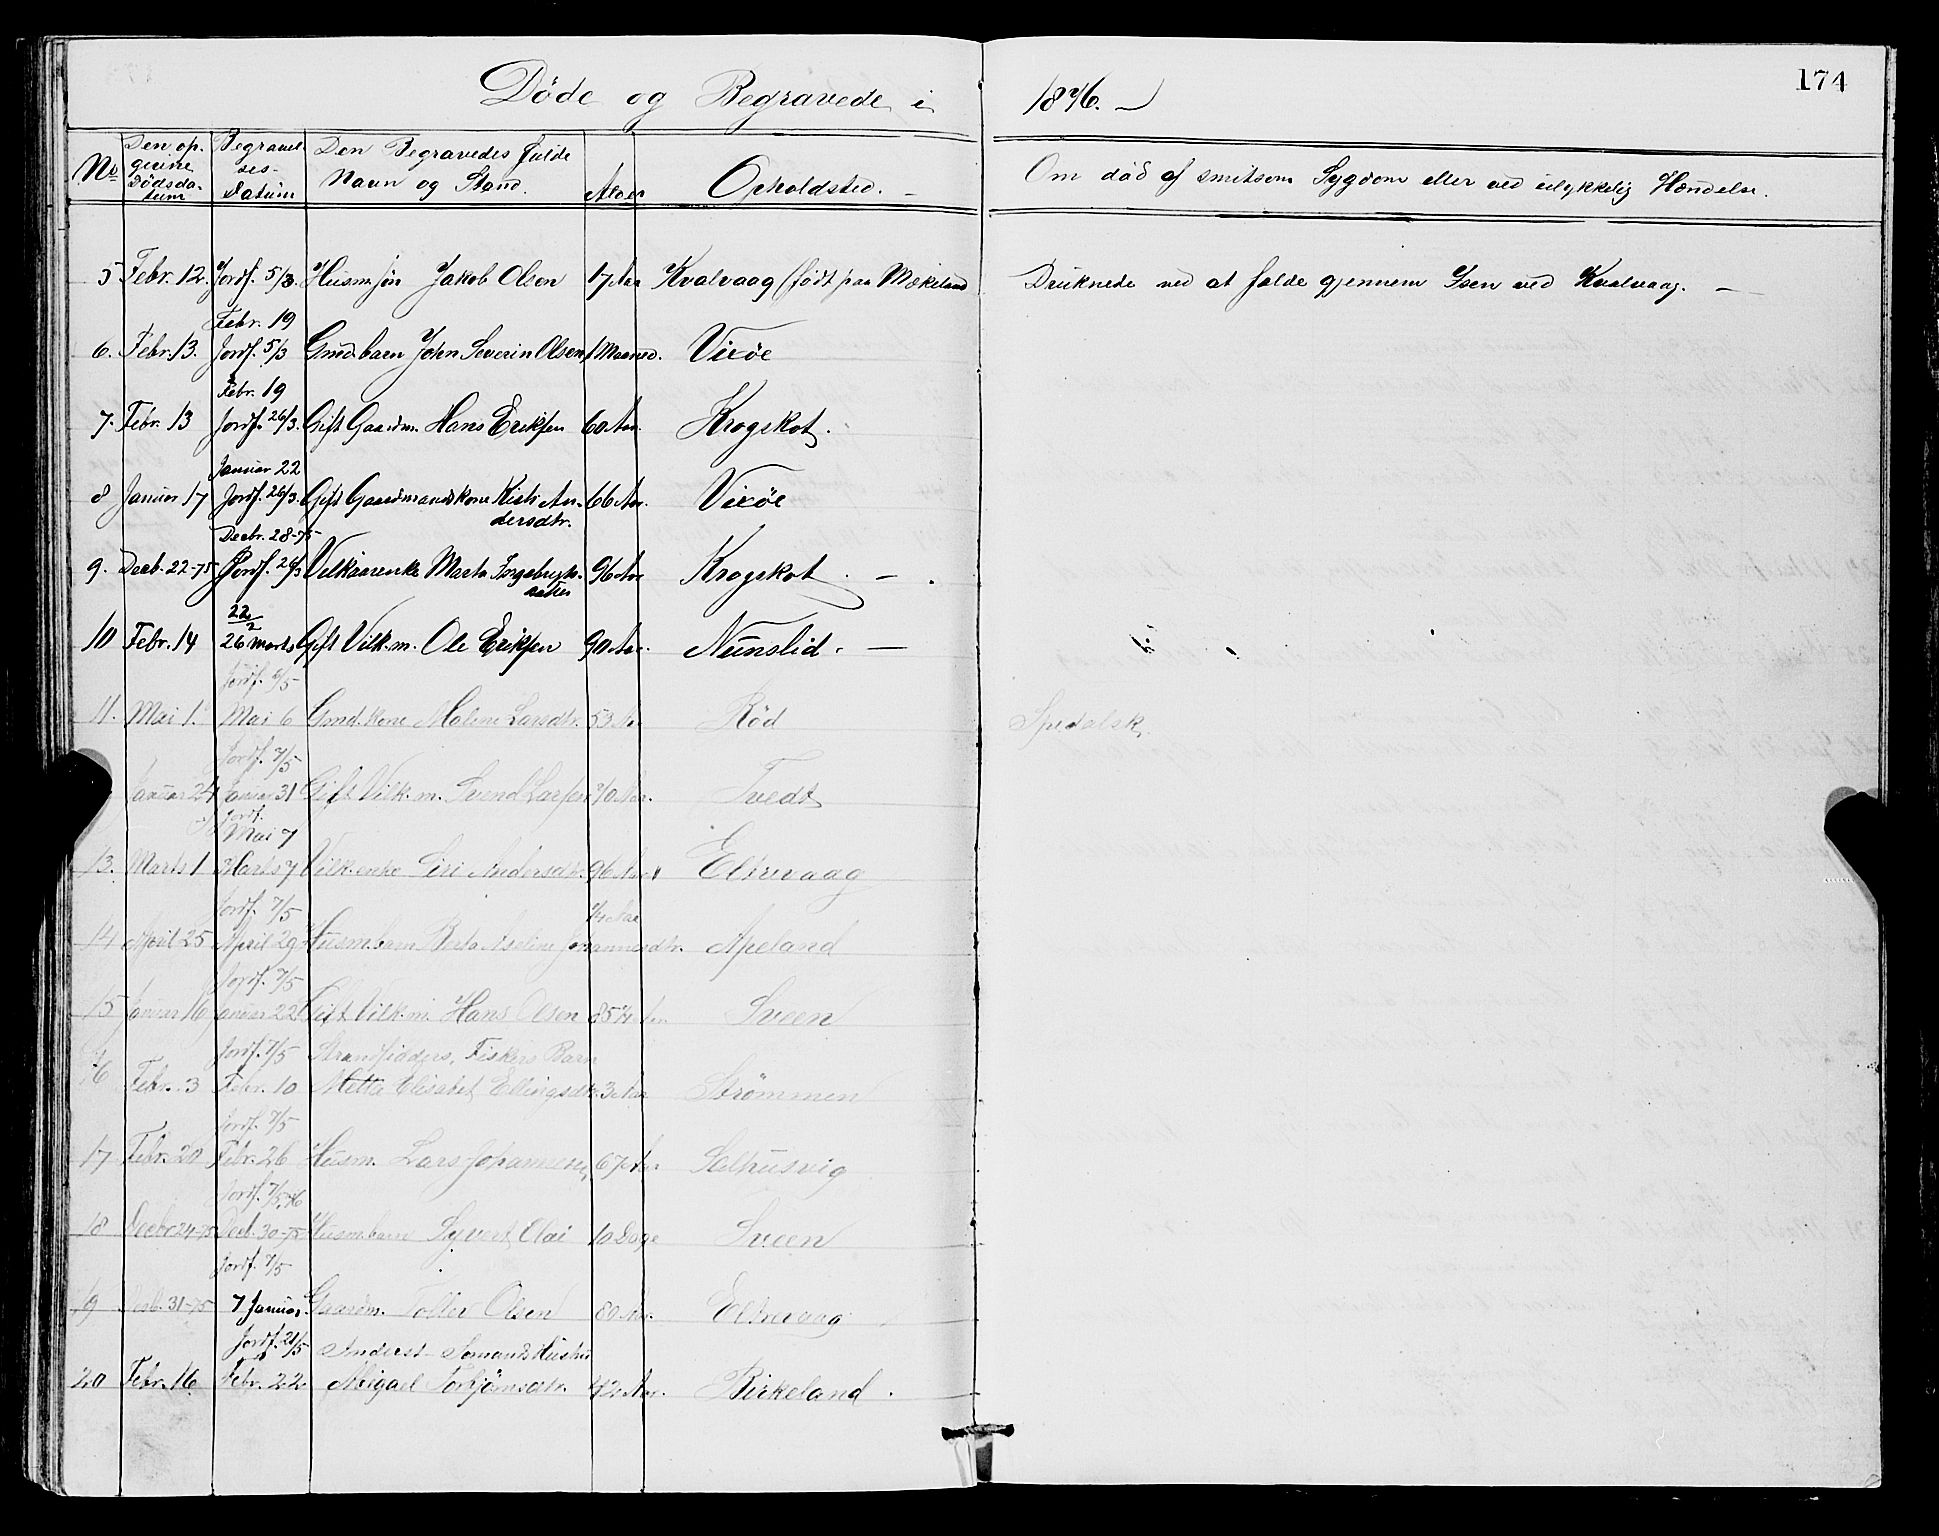 174
Döde og Begravede i 1876.
No Den opgivne Dödsdatum Begravelses-Datum Den Begravedes fulde Navn og Stand. Alder Opholdsted. Om död af smitsom Sygdom eller ved ulykkelig Hændelse.
5 Febr. 12. Jordf. 5/3. Husm. sön Jakob Olsen 17 Aar Kvalvaag (født paa Mækeland Druknede ved at falde gjennem Isen ved Kvalvaag.
Febr. 19
6. Febr. 13. Jordf. 5/3 Gmd. barn John Severin Olsen 1 Maaned. Vixöe
Febr. 19
7. Febr. 13 Jordf. 26/3. Gift Gaardm. Hans Eriksen 60 Aar. Krogskot.
Januar 22
8 Januar 17 Jordf. 26/3. Gift Gaardmandskone Kisti An- 66 Aar. Vixöe
dersdtr.
Decbr. 28-75
9. Decb. 22-75 Jordf. 26/3 Vilkaarenke Marta Ingebrigts- 96 Aar Krogskot.
datter
22/2
10 Febr. 14 26 Marts Gift Vilk. m. Ole Eriksen 90 Aar. Nunslid.
Jordf. 6/5
11. Mai 1. Mai 6 Gmd. kone Malene Larsdtr. 53 Aar Röd Spedalsk.
Jordf. 7/5
Januar 24 Januar 31 Gift Vilk. m. Svend Larsen 70 Aar. Tvedt
Jordf.
Mai 7
13. Marts 1 Marts 7 Vilk. enke Siri Andersdtr. 96 Aar Eltrevaag
Jordf. 7/5 1/4 Aar
14 April 25 April 29 Husm. barn Berta Aseline Johannesdtr. Apeland
Jordf. 7/5
15 Januar 16 Januar 22 Gift Vilk. m. Hans Olsen 85 1/4 Aar Sveen
Jordf. 7/5 Strandsidders, Fiskers Barn
16 Febr. 3 Febr. 10 Metta Elisabet Ellingsdtr. 3 Aar Strömmen
Jordf. 7/5
17 Febr. 20 Febr. 26 Husm. Lars Johannesen 67 Aar Salhusvig
Jordf. 7/5 76
18 Decbr 24-75 Decb. 30-75 Husm. barn Syvert Olai 10 Dage Sveen
Jordf. 7/5
19 Decb. 31-75 7 Januar. Gaardm. Tollev Olsen 80 Aar. Eltrevaag
Jordf. 21/5 Inderst- Sömands Hustru
20 Febr. 16 Febr. 22 Abigael Torbjörnsdtr. 42 Aar. Birkeland.